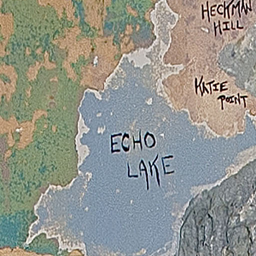 HECKMAN
HILL
KATIE
POINT
ECHO
LAKE